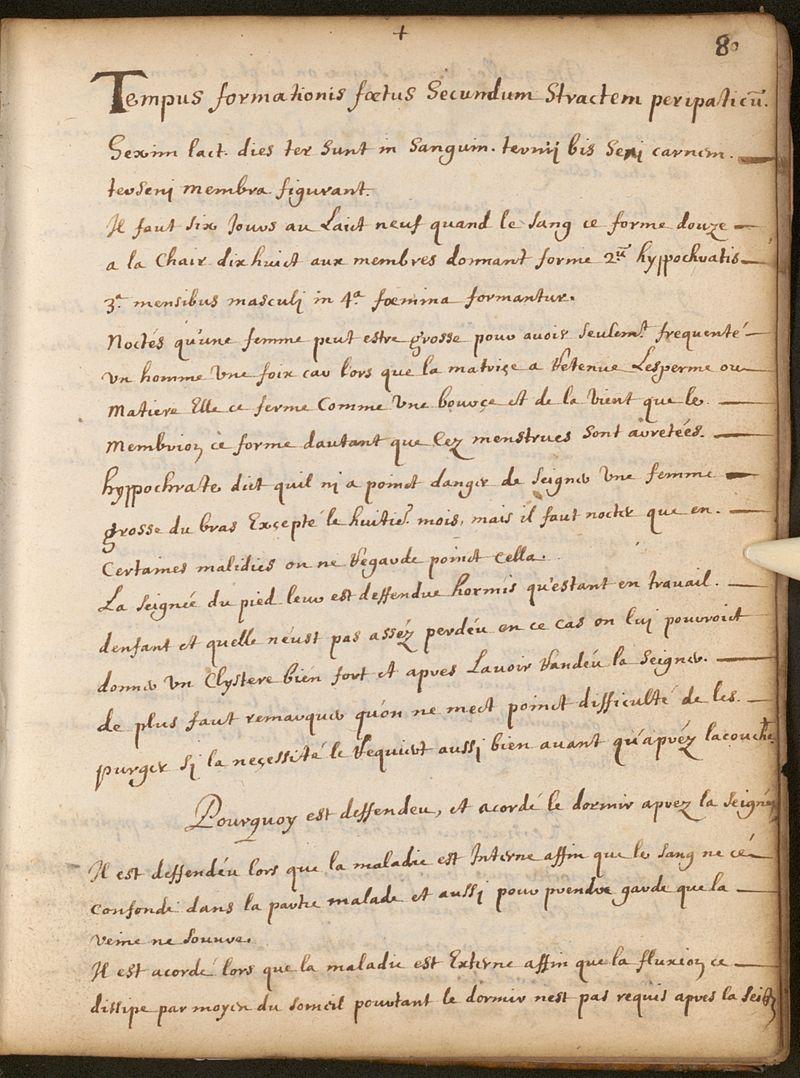 +
80
Tempus formationis fœtus Secundum Stractem peripaticũ.
Sexinn lact. dies ter sunt in Sanguin. ternij bis Seni carnem.
terseni membra figurant.
Il faut six Jours au Laict neuf quand le sang ce forme douze
a la Chair dixhuict aux membres donnant forme 2um hyppochratis
3.a mensibus masculj in 4.a fœmina formantur.
Noctés qu'une femme peut estre grosse pour avoir seulemt. frequenté
un homme Une foix car lors que la matriçe a Retenue Lesperme ou
Matiere Elle ce ferme Comme Une bourçe et de la Vient que le
Membrion ce forme dautant que lez menstrues sont arretées.
hyppochrate dict quil ni a poinct danger de seigner Une femme
grosse du bras Excepté le huitie.e mois, mais il faut nocter que en
Certaines malidies on ne Regarde poinct cella.
La seignée du pied leur est deffendue hormis qu'estant en travail
denfant et quelle néust pas asséz perdéu en ce cas on lui pourroict
donner Un Clystere bien fort et apres Lavoir Randéu la seigner.
de plus faut remarquer qu'on ne mect poinct difficulté de les
purger si la neçessité le Requiert aussj bien avant qu'apréz lacouche.
Pourquoy est deffendeu, et acordé le dormir aprez la seignée
Il est deffendéu lors que la maladie est Interne affin que le sang ne cé
confonde dans la partie malade et aussj pour prendre garde que la
veine ne souvre.
Il est acordé lors que la maladie est Externe affin que la fluxion ce
dissipe par moyen du someil pourtant le dormir nest pas requis apres la